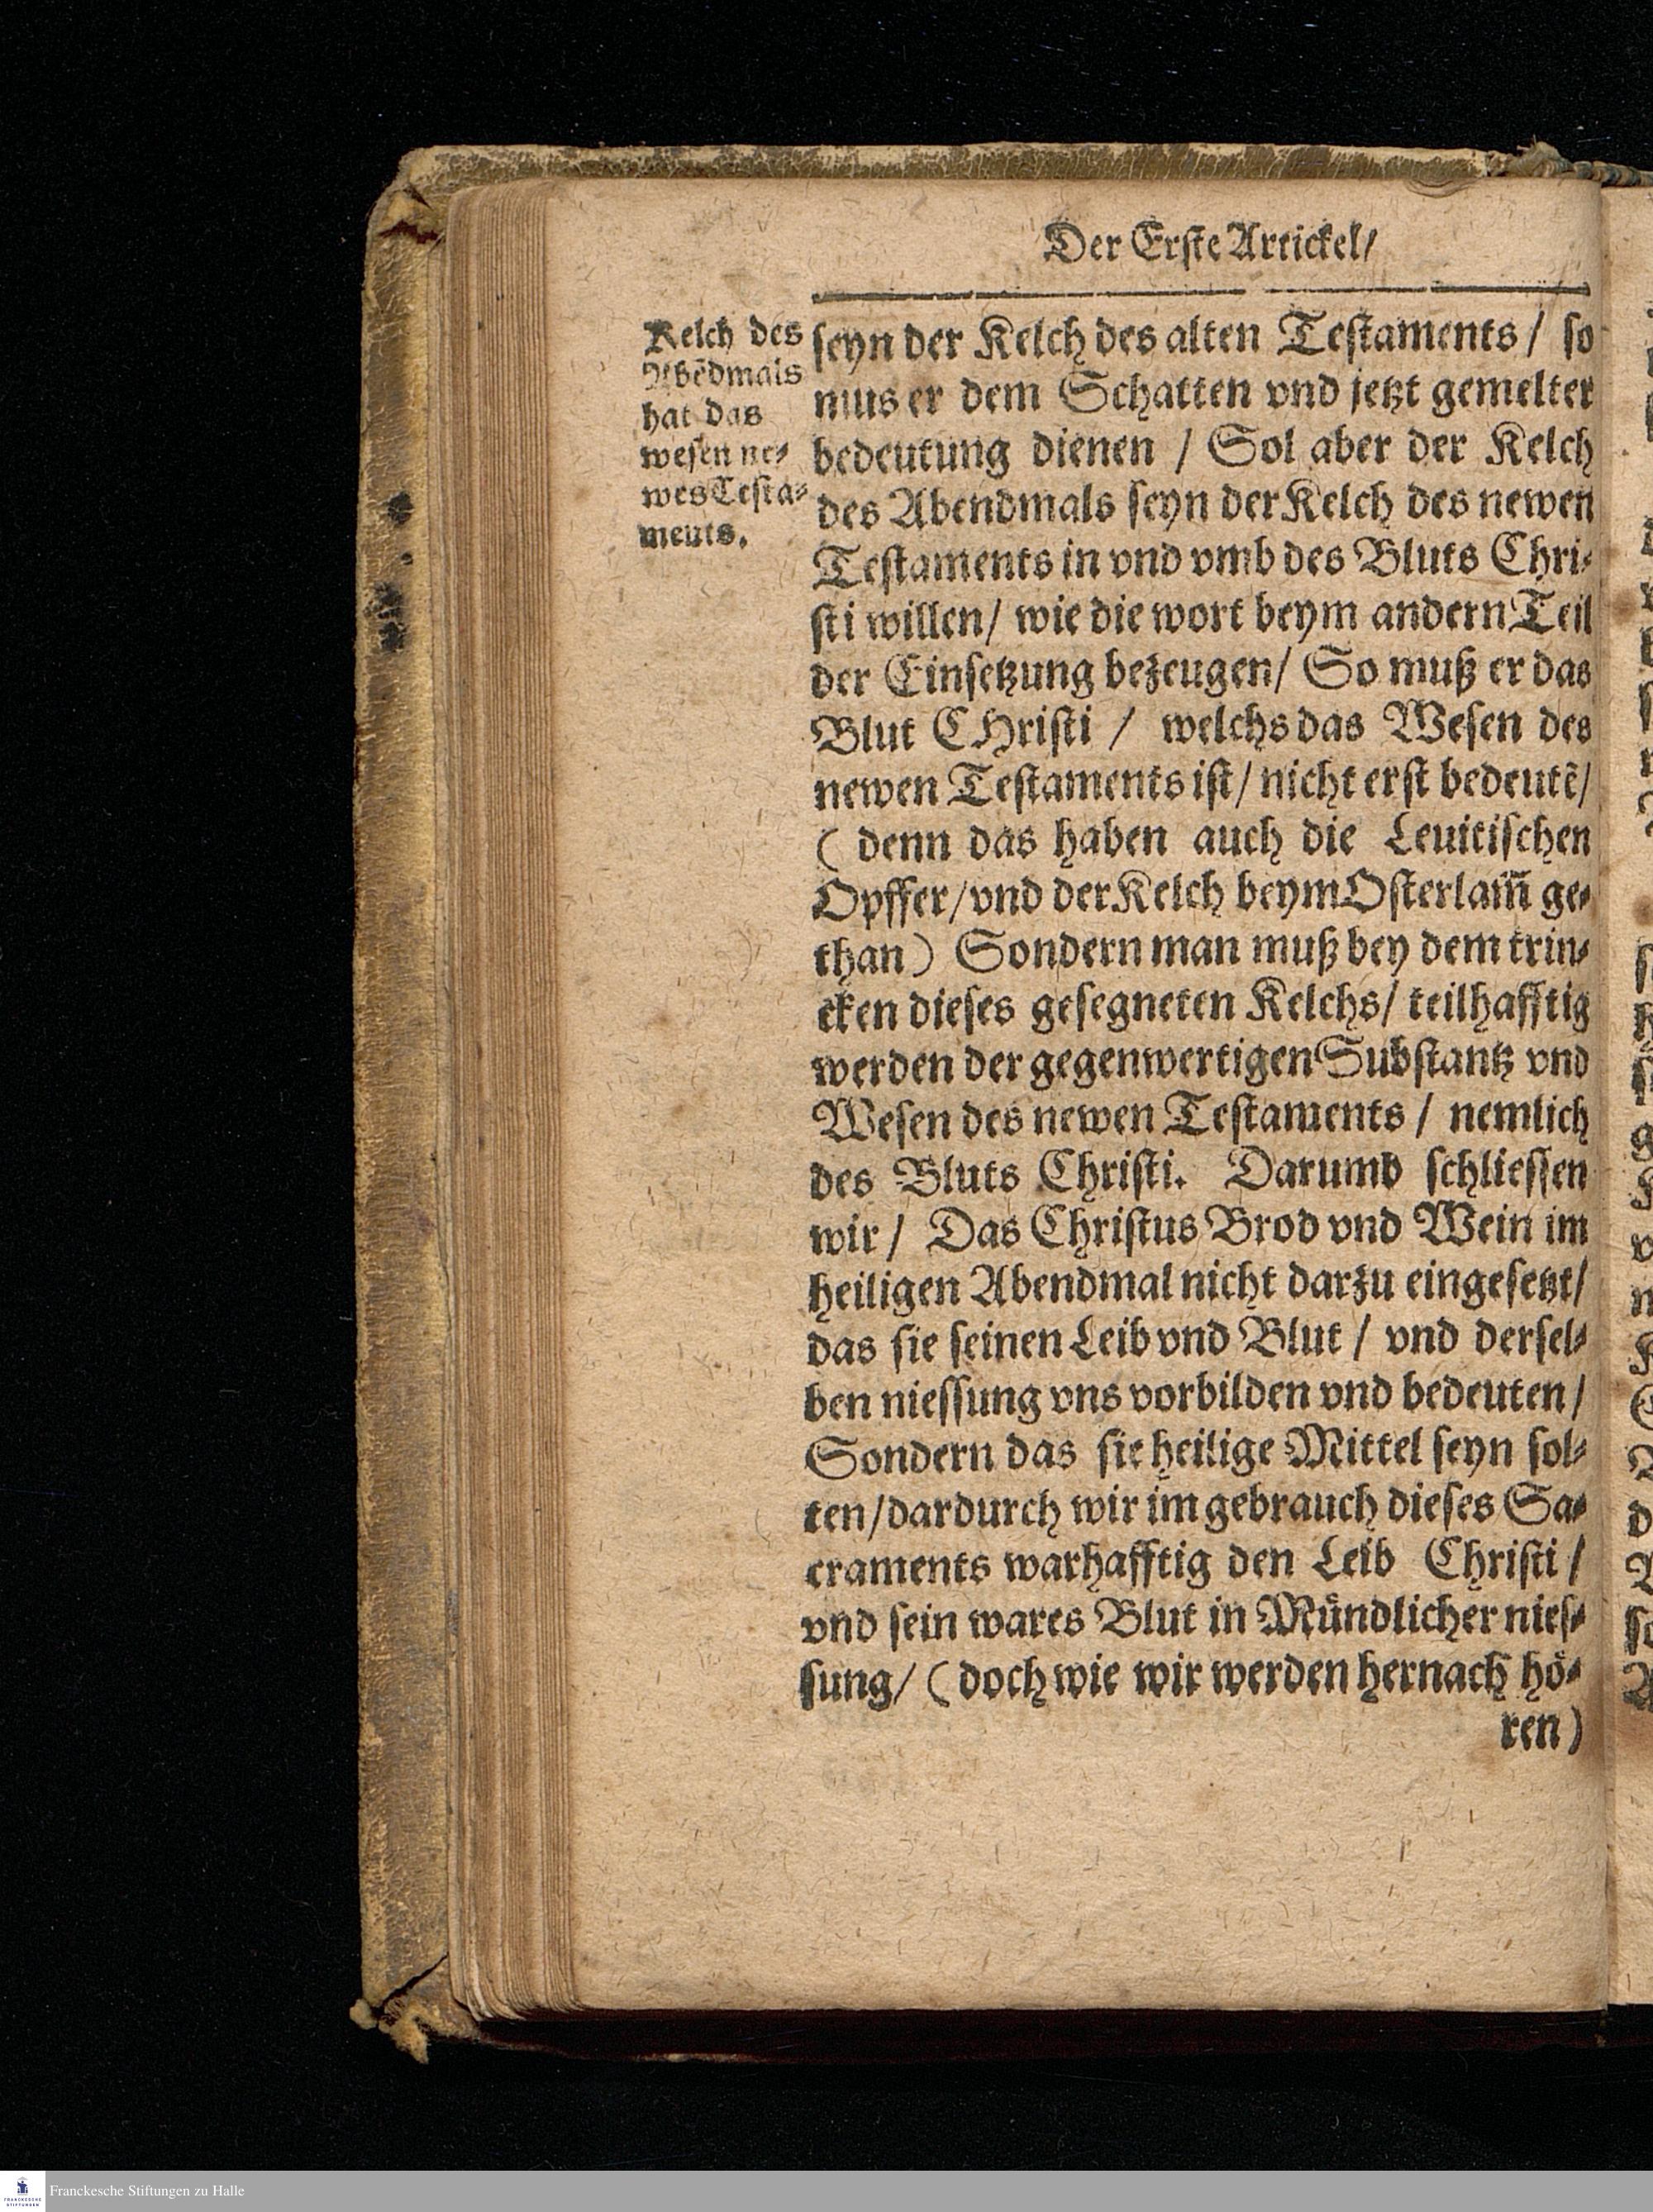 Der Erste Artickel/
Kelch des
Abẽdmals
hat das
wesen ne⸗
wes Testa⸗
ments.
seyn der Kelch des alten Testaments / so
mus er dem Schatten vnd jetzt gemelter
bedeutung dienen / Sol aber der Kelch
des Abendmals seyn der Kelch des newen
Testaments in vnd vmb des Bluts Chri⸗
sti willen/ wie die wort beym andern Teil
der Einsetzung bezeugen/ So muß er das
Blut CHristi / welchs das Wesen des
newen Testaments ist/ nicht erst bedeutẽ/
( denn das haben auch die Leuitischen
Opffer/ vnd der Kelch beym Osterlam̃ ge⸗
than) Sondern man muß bey dem trin⸗
cken dieses gesegneten Kelchs/ teilhafftig
werden der gegenwertigen Substantz vnd
Wesen des newen Testaments / nemlich
des Bluts Christi. Darumb schliessen
wir / Das Christus Brod vnd Wein im
heiligen Abendmal nicht darzu eingesetzt/
das sie seinen Leib vnd Blut / vnd dersel⸗
ben niessung vns vorbilden vnd bedeuten /
Sondern das sie heilige Mittel seyn sol⸗
ten/ dardurch wir im gebrauch dieses Sa⸗
craments warhafftig den Leib Christi /
vnd sein wares Blut in Mündlicher nies⸗
sung/ ( doch wie wir werden hernach hö⸗
ren)
Franckesche Stiftungen zu Halle